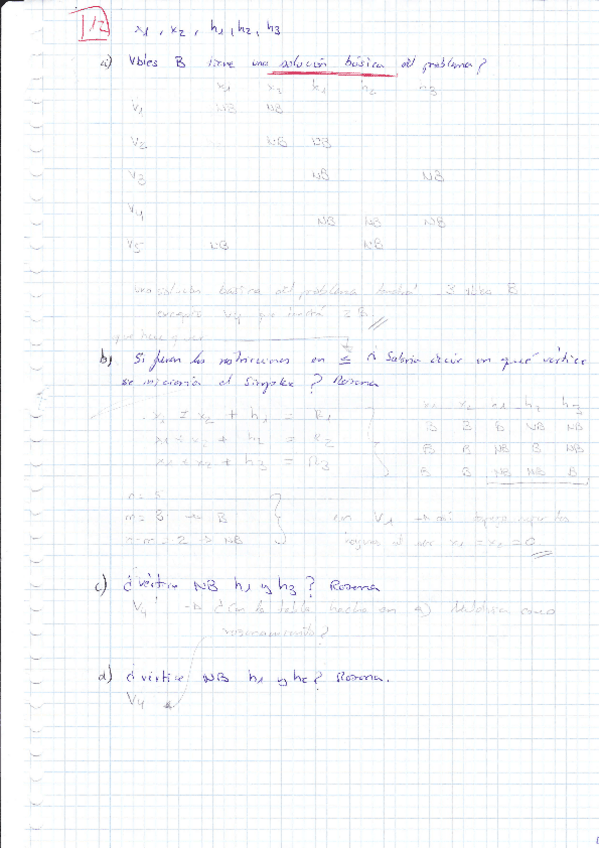 1/2
x1, x2, h1, h2, h3
a) Vbles B tiene una solución básica del problema?
x1 x2 h1 h2 h3
V1 NB NB
V2 NB NB
V3 NB NB
V4 NB NB NB
V5 NB NB
una solución básica del problema tendrá 3 vbles B
excepto V4 que tendrá 2 B.
que hace
b) Si fueran las restricciones en ≤ Sabría decir en qué vértice
se iniciaría el Simplex? Razona
x1 + x2 + h1 = R1
x1 + x2 + h2 = R2
x1 + x2 + h3 = R3
x1 x2 h1 h2 h3
B B B NB NB
B B NB B NB
B B NB NB B
n = 5
m = 3 → B
n-m = 2 → NB
en V1 x1 = x2 = 0
c) ¿vértice NB h1 y h3? Razona
V4 → ¿Con la tabla hecha en a) como
razonamiento?
d) ¿vértice NB h1 y h2? Razona.
V4